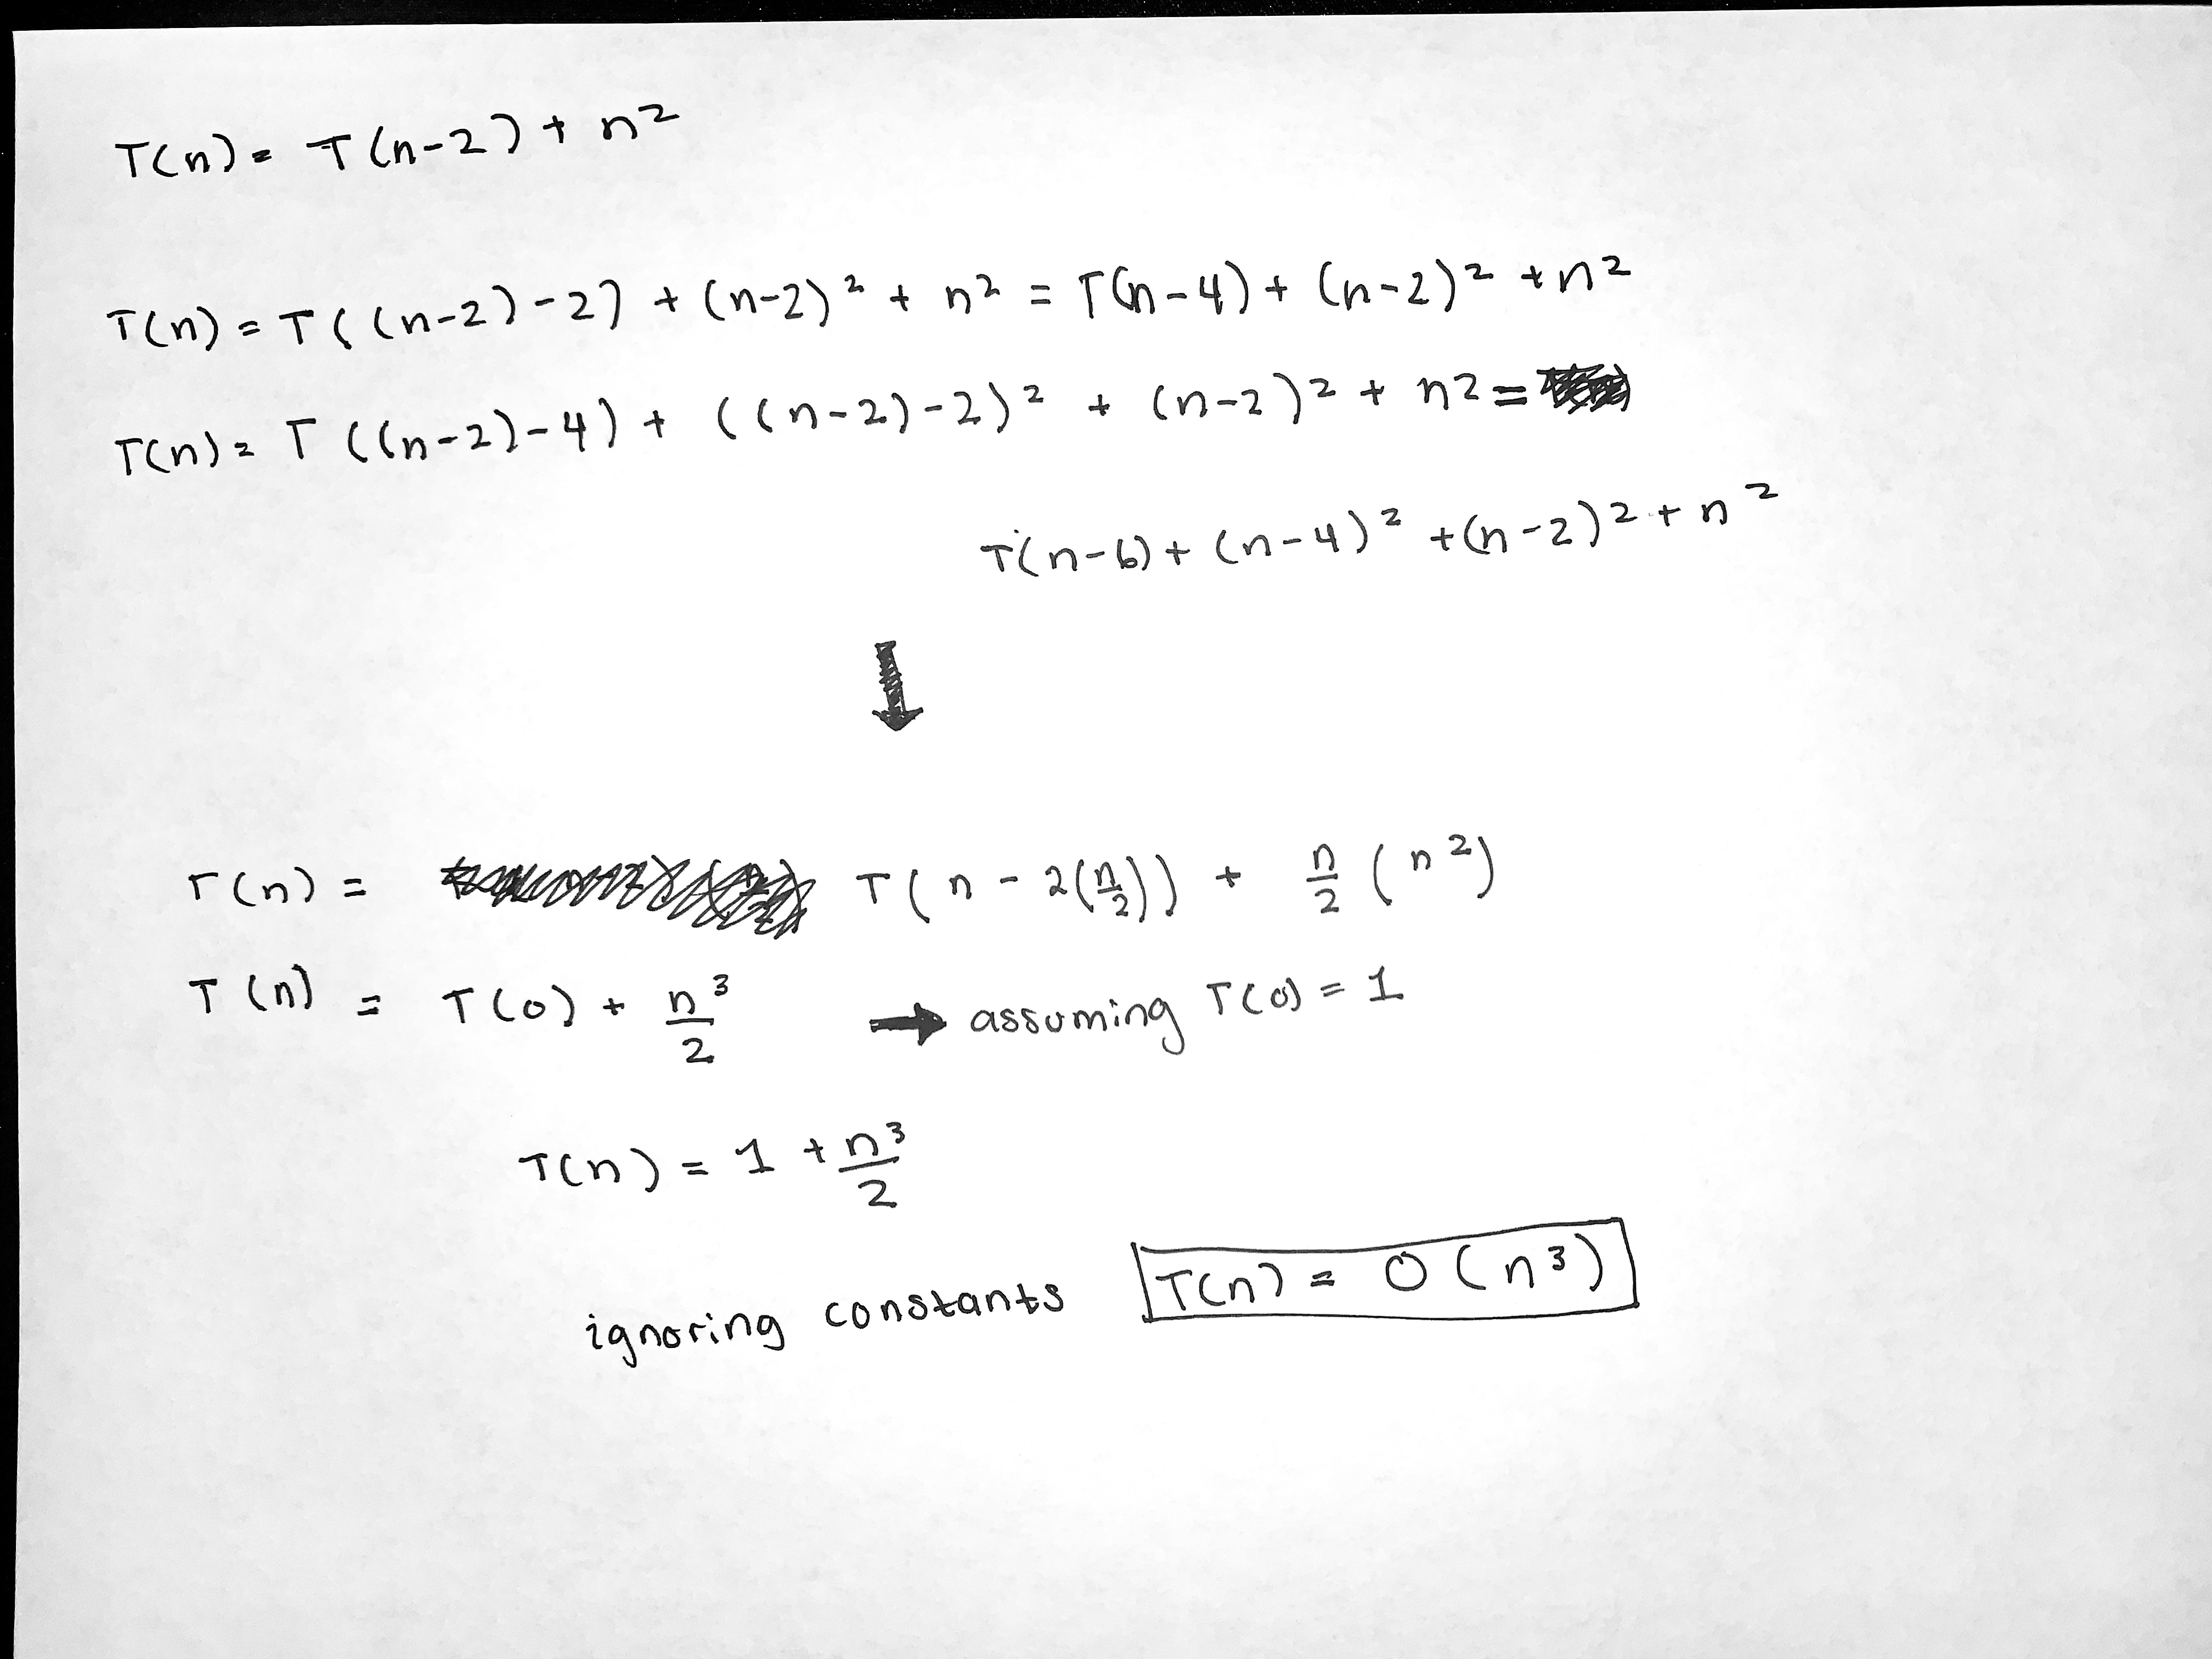 T(n) = T(n-2) + n²
T(n) = T((n-2)-2) + (n-2)² + n² = T(n-4) + (n-2)² + n²
T(n) = T((n-2)-4) + ((n-2)-2)² + (n-2)² + n2 =
T(n-6) + (n-4)² + (n-2)² + n²
T(n) = T(n - 2(n/2)) + n/2 (n²)
T(n) = T(0) + n³/2 → assuming T(0) = 1
T(n) = 1 + n³/2
ignoring constants T(n) = O(n³)